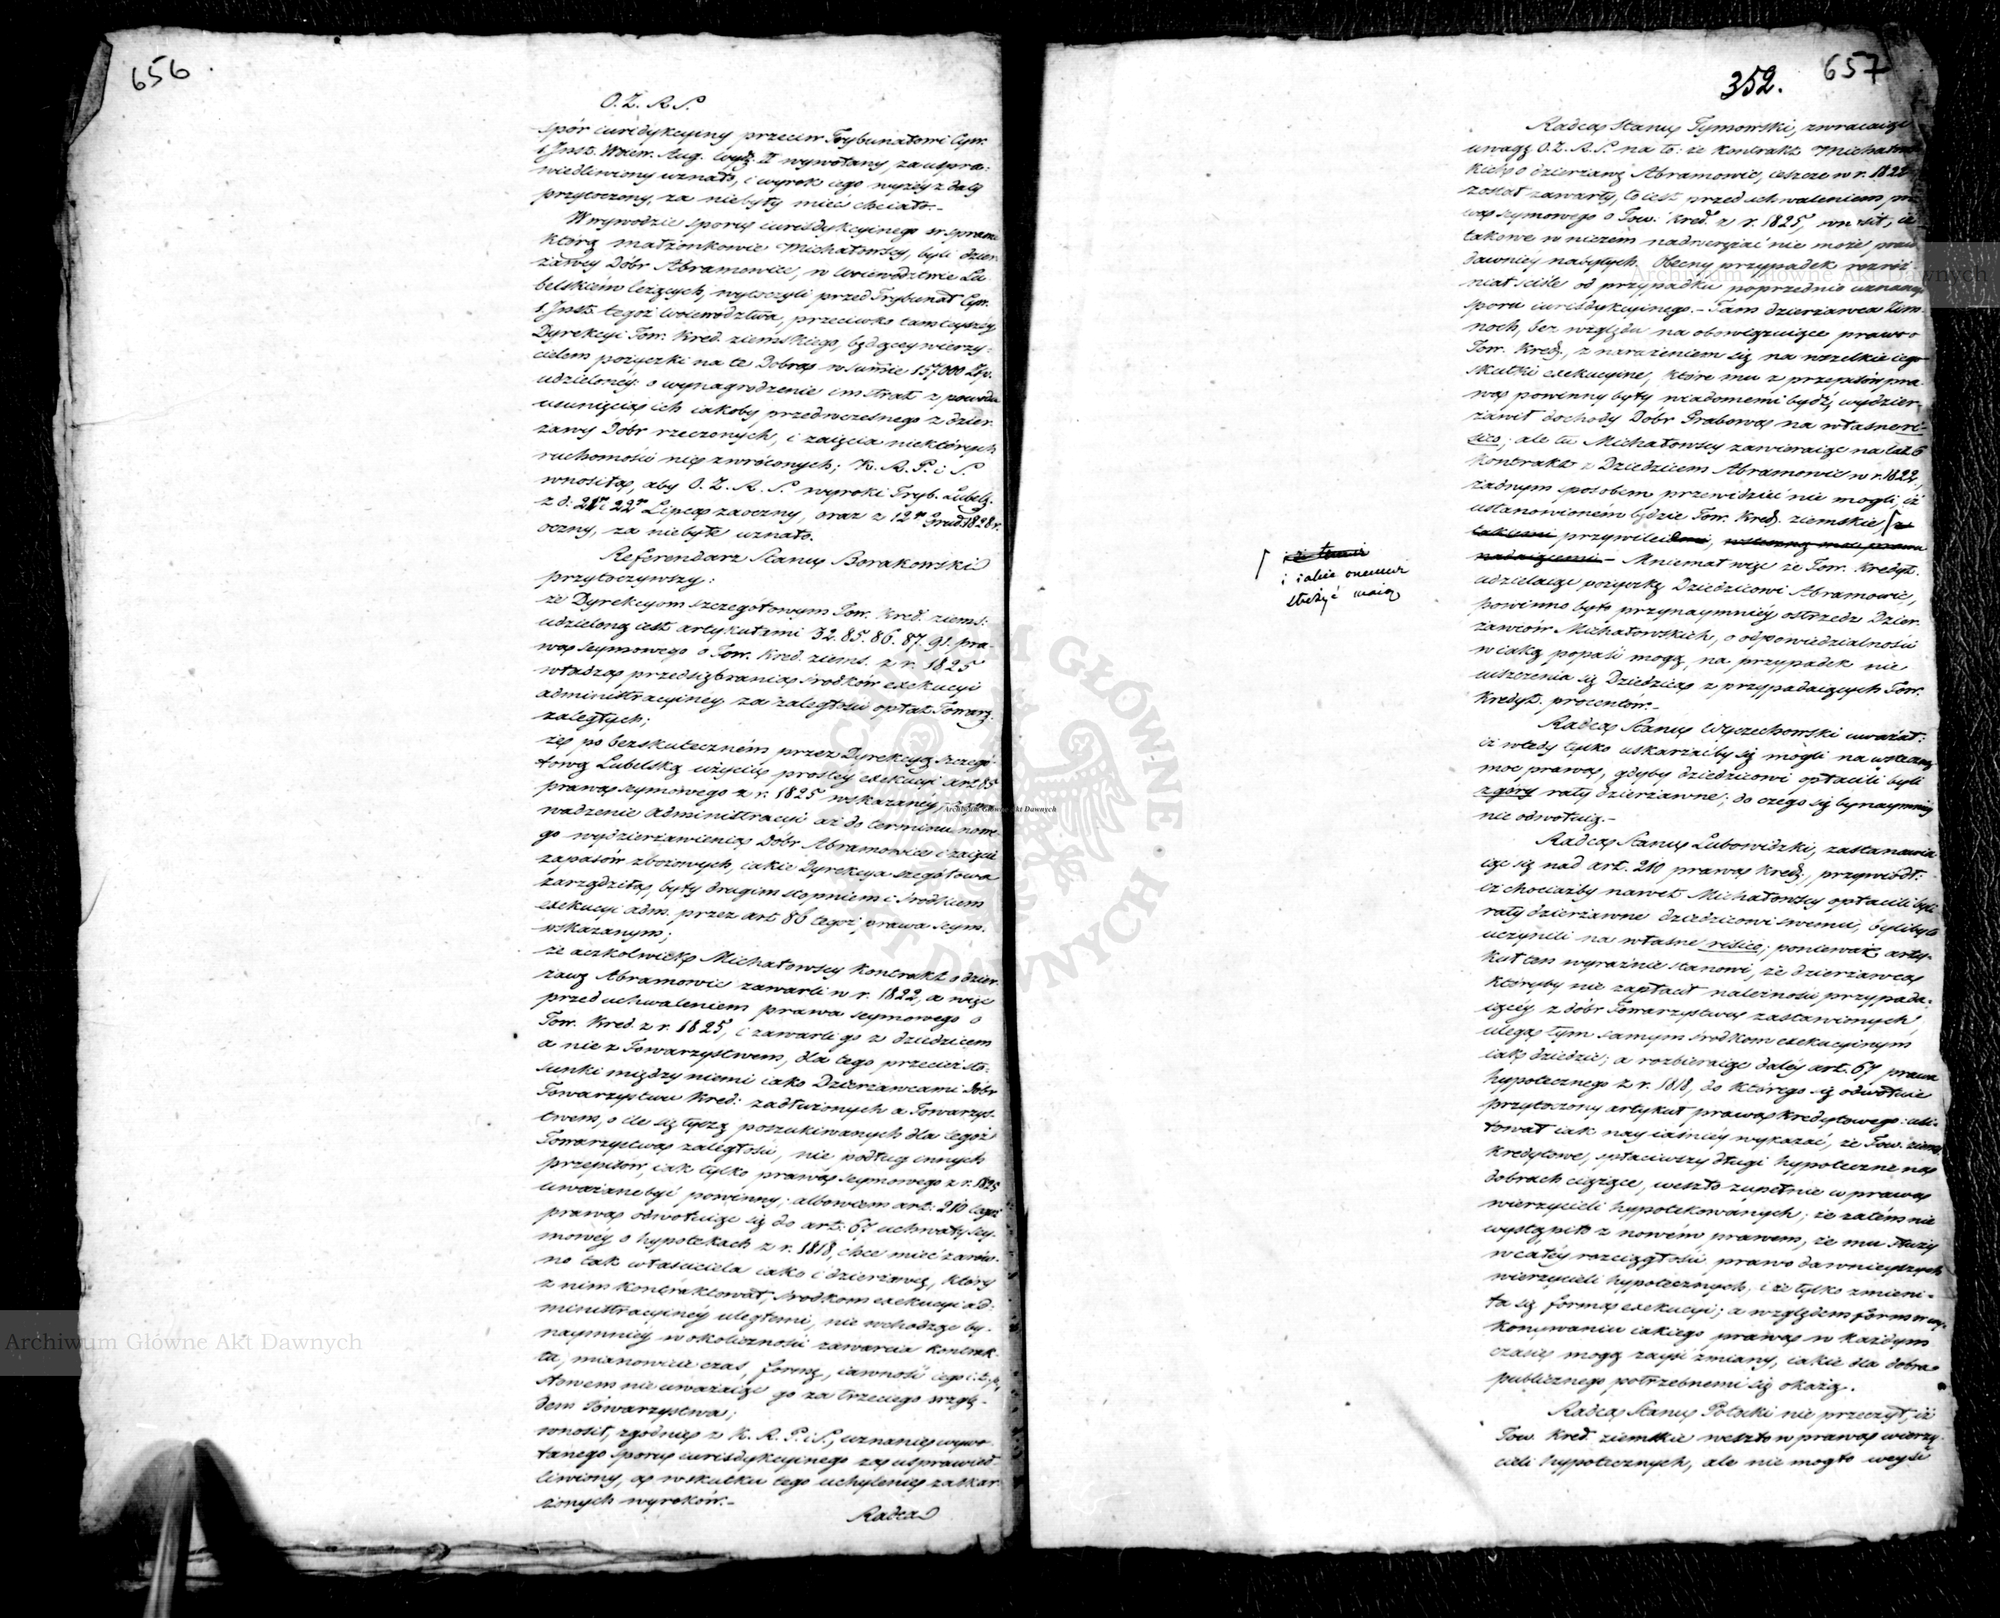 656
O. Z. R. S.
spór iurisdykcyiny przeciw Trybunałowi Cyw.
1 Inst. Woiew. Aug. wydz. II wywołany, za uspra-
wiedliwiony uznało, i wyrok iego wyżéy z daty
przytoczony, za niebyły mieć chciało.-
W wywodzie sporu iurisdykcyinego w sprawie
którą małżonkowie Michałowscy, byli dzier-
żawcy Dóbr Abramowice, w Województwie Lu-
belskiém leżących, wytoczyli przed Trybunał Cyw.
1 Inst. tegoż Województwa, przeciwko tamteyszéy
Dyrekcyi Tow. Kred. ziemskiego, będącey wierzy-
cielem pożyczki na te Dobra w summie 157000 Złp.
udzielonéy: o wynagrodzenie im strat z powodu
usunięcia ich iakoby przedwczesnego z dzier-
żawy Dóbr rzeczonych, i zaięcia niektórych
ruchomości nie zwróconych; K. R. P. i S.
wnosiła, aby O. Z. R. S. wyroki Tryb. Lubels.
z d. 21 i 22 Lipca zaoczny, oraz z 12 Grud. 1828 r.
oczny, za niebyłe uznało.
Referendarz Stanu Borakowski
przytoczywszy:
że Dyrekcyom szczegółowym Tow. Kred. ziems.
udzieloną iest artykułami 32. 85. 86. 87. 91. pra-
wa seymowego o Tow. Kred. ziems. z r. 1825
władza przedsiębrania środków exekucyi
administracyinéy za zaległości opłat Towarz.
zaległych;
że po bezskuteczném przez Dyrekcyą szczegó-
łową Lubelską użyciu prostéy exekucyi art. 85
prawa seymowego z r. 1825 wskazanéy, zapro-
wadzenie administracyi aż do terminu nowe-
go wydzierżawienia Dóbr Abramowice i zaięcie
zapasów zbożowych, iakie Dyrekcya szczegółowa
zarządziła, były drugim stopniem i środkiem
exekucyi adm. przez art. 86 tegoż prawa seym.
wskazanym;
że aczkolwiek Michałowscy kontrakt o dzier-
żawę Abramowic zawarli w r. 1822, a więc
przed uchwaleniem prawa seymowego o
Tow. Kred. z r. 1825, i zawarli go z dziedzicem
a nie z Towarzystwem, dla tego przecież sto-
sunki między niemi iako Dzierżawcami Dóbr
Towarzystwu Kred. zadłużonych a Towarzys-
twem, o ile się tyczą poszukiwanych dla tegoż
Towarzystwa zaległości, nie podług innych
przepisów, iak tylko prawa seymowego z r. 1825
uważane być powinny; albowiem art. 210 tegoż
prawa odwołuiąc się do art. 67 uchwały sey-
mowéy o hypotekach z r. 1818, chce mieć zarów-
no tak właściciela iako i dzierżawcę, który
z nim kontraktował, środkom exekucyi ad-
ministracyinéy uległemi, nie wchodząc by-
naymniéy w okoliczności zawarcia kontrak-
tu, mianowicie czas, formę, iawność iego i t. p.
słowem nie uważaiąc go za trzeciego wzglę-
dem Towarzystwa;
wnosił, zgodnie z K. R. P. i S., uznanie wywo-
łanego sporu iurisdykcyinego za usprawied-
liwiony, a w skutku tego uchylenie zaskar-
żonych wyroków.-
Radca
352.
657
Radca Stanu Tymowski, zwracaiąc
uwagę O. Z. R. S. na to: że kontrakt Michałows-
kich o dzierżawę Abramowic, ieszcze w r. 1822
został zawarty, to iest przed uchwaleniem pra-
wa seymowego o Tow. Kred. z r. 1825, wnosił, iż
takowe w niczém nadwerężać nie może praw
dawniéy nabytych. Obecny przypadek rozróż-
niał ściśle od przypadku poprzednio uznanego
sporu iurisdykcyinego. - Tam dzierżawca Zim-
noch, bez względu na obowiązuiące prawo o
Tow. Kred., z narażeniem się na wszelkie iego
skutki exekucyine, które mu z przepisów pra-
wa powinny były wiadomemi bydź, wydzier-
żawił dochody Dóbr Grabowa na własne ri-
sico; ale tu Michałowscy zawieraiąc na lat 6
kontrakt z Dziedzicem Abramowic w r. 1822,
żadnym sposobem przewidzieć nie mogli, iż
ustanowioném będzie Tow. Kred. ziemskie, z
takiemi przywileiami, wsteczną moc prawa
nadaiącemi - Mniemał więc że Tow. Kredyt.
udzielaiąc pożyczkę Dziedzicowi Abramowic,
powinno było przynaymniéy ostrzedz Dzier-
żawców Michałowskich, o odpowiedzialności
w iaką popaść mogą, na przypadek nie
uiszczenia się Dziedzica z przypadaiących Tow.
Kredyt. procentów.-
i iakie onemu
służyć maią
Radca Stanu Wyczechowski uważał:
iż wtedy tylko uskarżaćby się mogli na wsteczną
moc prawa, gdyby dziedzicowi opłacili byli
z góry raty dzierżawne; do czego się bynaymniéy
nie odwołuią.-
Radca Stanu Lubowidzki, zastanawia-
iąc się nad art. 210 prawa Kred., przywiódł:
iż chociażby nawet Michałowscy opłacili byli
raty dzierżawne dziedzicowi swemu, byliby to
uczynili na własne risico; ponieważ arty-
kuł ten wyraźnie stanowi, że dzierżawca
któryby nie zapłacił należności przypada-
iącéy z dóbr Towarzystwu zastawionych,
ulega tym samym środkom exekucyinym
iak dziedzic; a rozbieraiąc daléy art. 67 prawa
hypotecznego z r. 1818, do którego się odwołuie
przytoczony artykuł prawa kredytowego: usi-
łował iak nayiaśniéy wykazać, że Tow. ziems.
kredytowe, spłaciwszy długi hypoteczne na
dobrach ciążące, weszło zupełnie w prawa
wierzycieli hypotekowanych; że zatém nie
wystąpiło z nowém prawem, że mu służy
w całéy rozciągłości prawo dawnieyszych
wierzycieli hypotecznych, i że tylko zmieni-
ła się forma exekucyi; a względem form w wy-
konywaniu iakiego prawa w każdym
czasie mogą zayść zmiany, iakie dla dobra
publicznego potrzebnemi się okażą.
Radca Stanu Potocki nie przeczył, iż
Tow. Kred. ziemskie weszło w prawa wierzy-
cieli hypotecznych, ale nie mogło weyść
Archiwum Główne Akt Dawnych
Archiwum Główne Akt Dawnych
Archiwum Główne Akt Dawnych
ARCHIWUM GŁÓWNE AKT DAWNYCH